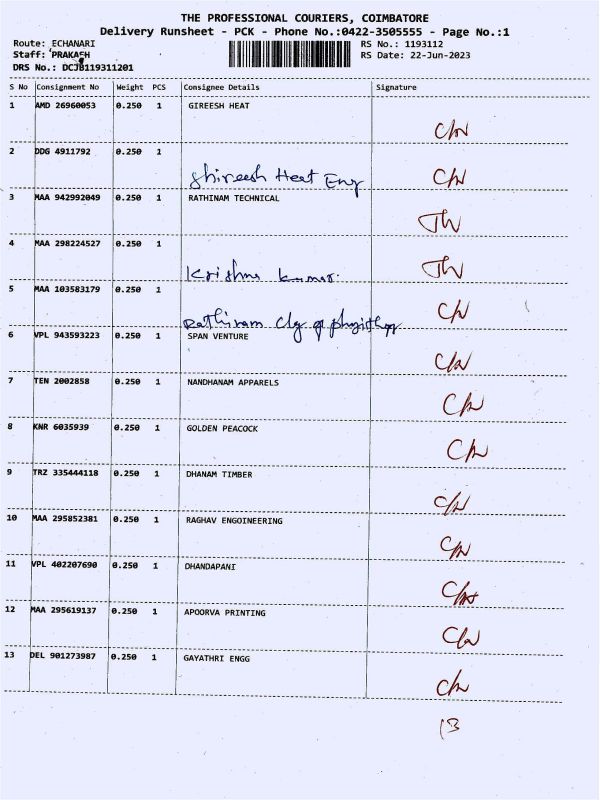 THE PROFESSIONAL COURIERS, COIMBATORE
Delivery Runsheet - PCK - Phone No.:0422-3505555 - Page No.:1
Route: ECHANARI RS No.: 1193112
Staff: PRAKASH RS Date: 22-Jun-2023
DRS No.: DCJB119311201
S No Consignment No Weight PCS Consignee Details Signature
1 AMD 26960053 0.250 1 GIREESH HEAT
C/N
2 DDG 4911792 0.250 1
Shireesh Heat Eng C/N
3 MAA 942992049 0.250 1 RATHINAM TECHNICAL
4 MAA 298224527 0.250 1
Krishna Kumar.
5 MAA 103583179 0.250 1
C/N
Rathinam Clg of
6 VPL 943593223 0.250 1 SPAN VENTURE
C/N
7 TEN 2002858 0.250 1 NANDHANAM APPARELS
C/N
8 KNR 6035939 0.250 1 GOLDEN PEACOCK
C/N
9 TRZ 335444118 0.250 1 DHANAM TIMBER
C/N
10 MAA 295852381 0.250 1 RAGHAV ENGOINEERING
C/N
11 VPL 402207690 0.250 1 DHANDAPANI
12 MAA 295619137 0.250 1 APOORVA PRINTING
C/N
13 DEL 901273987 0.250 1 GAYATHRI ENGG
C/N
13